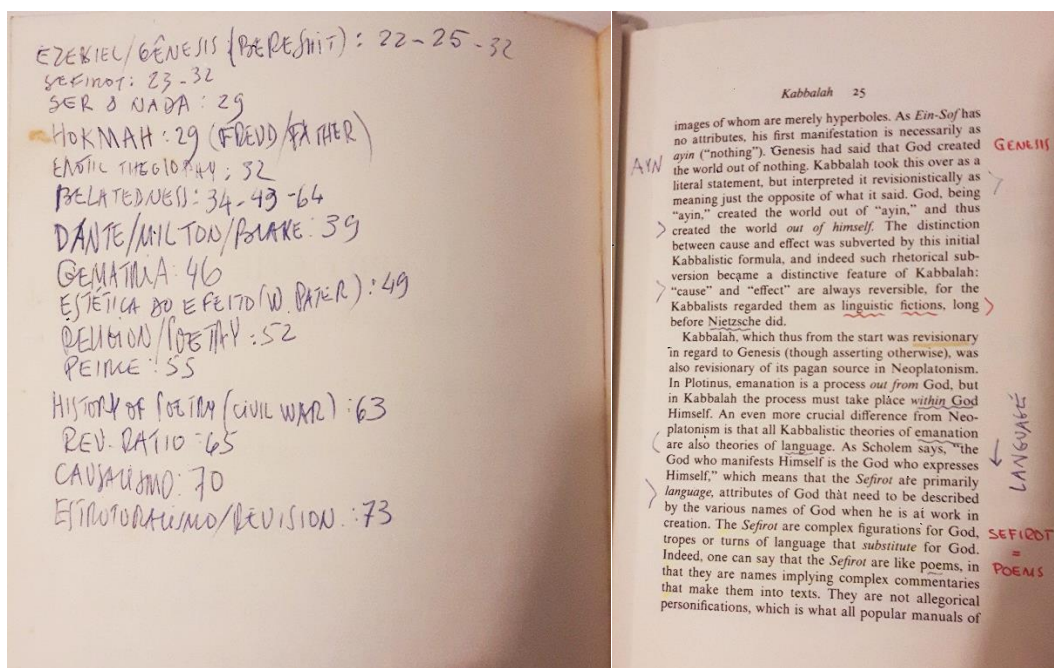 EZEKIEL/GÊNESIS (BERESHIT): 22-25-32
SEFIROT: 23-32
SER O NADA: 29
HOKMAH: 29 (FREUD/FATHER)
EROTIC THEGIORAY: 32
BELATEDNESS: 34-43-64
DANTE/MILTON/BLAKE: 39
GEMATRIA: 46
ESTÉTICA DO EFEITO (W. PATER): 49
RELIGION/POETRY: 52
PEIRCE: 55
HISTORY OF POETRY (CIVIL WAR): 63
REV. RATIO: 65
CAUSALISMO: 70
ESTRUTURALISMO/REVISION.: 73
Kabbalah 25
images of whom are merely hyperboles. As Ein-Sof has
no attributes, his first manifestation is necessarily as
ayin ("nothing"). Genesis had said that God created
GENESIS
AYN
the world out of nothing. Kabbalah took this over as a
literal statement, but interpreted it revisionistically as
meaning just the opposite of what it said. God, being
"ayin," created the world out of "ayin," and thus
created the world out of himself. The distinction
between cause and effect was subverted by this initial
Kabbalistic formula, and indeed such rhetorical sub-
version became a distinctive feature of Kabbalah:
"cause" and "effect" are always reversible, for the
Kabbalists regarded them as linguistic fictions, long
before Nietzsche did.
Kabbalah, which thus from the start was revisionary
in regard to Genesis (though asserting otherwise), was
also revisionary of its pagan source in Neoplatonism.
In Plotinus, emanation is a process out from God, but
in Kabbalah the process must take place within God
Himself. An even more crucial difference from Neo-
platonism is that all Kabbalistic theories of emanation
are also theories of language. As Scholem says, "the
God who manifests Himself is the God who expresses
Himself," which means that the Sefirot are primarily
language, attributes of God that need to be described
by the various names of God when he is at work in
creation. The Sefirot are complex figurations for God,
tropes or turns of language that substitute for God.
Indeed, one can say that the Sefirot are like poems, in
that they are names implying complex commentaries
that make them into texts. They are not allegorical
personifications, which is what all popular manuals of
LANGUAGE
SEFIROT
=
POEMS